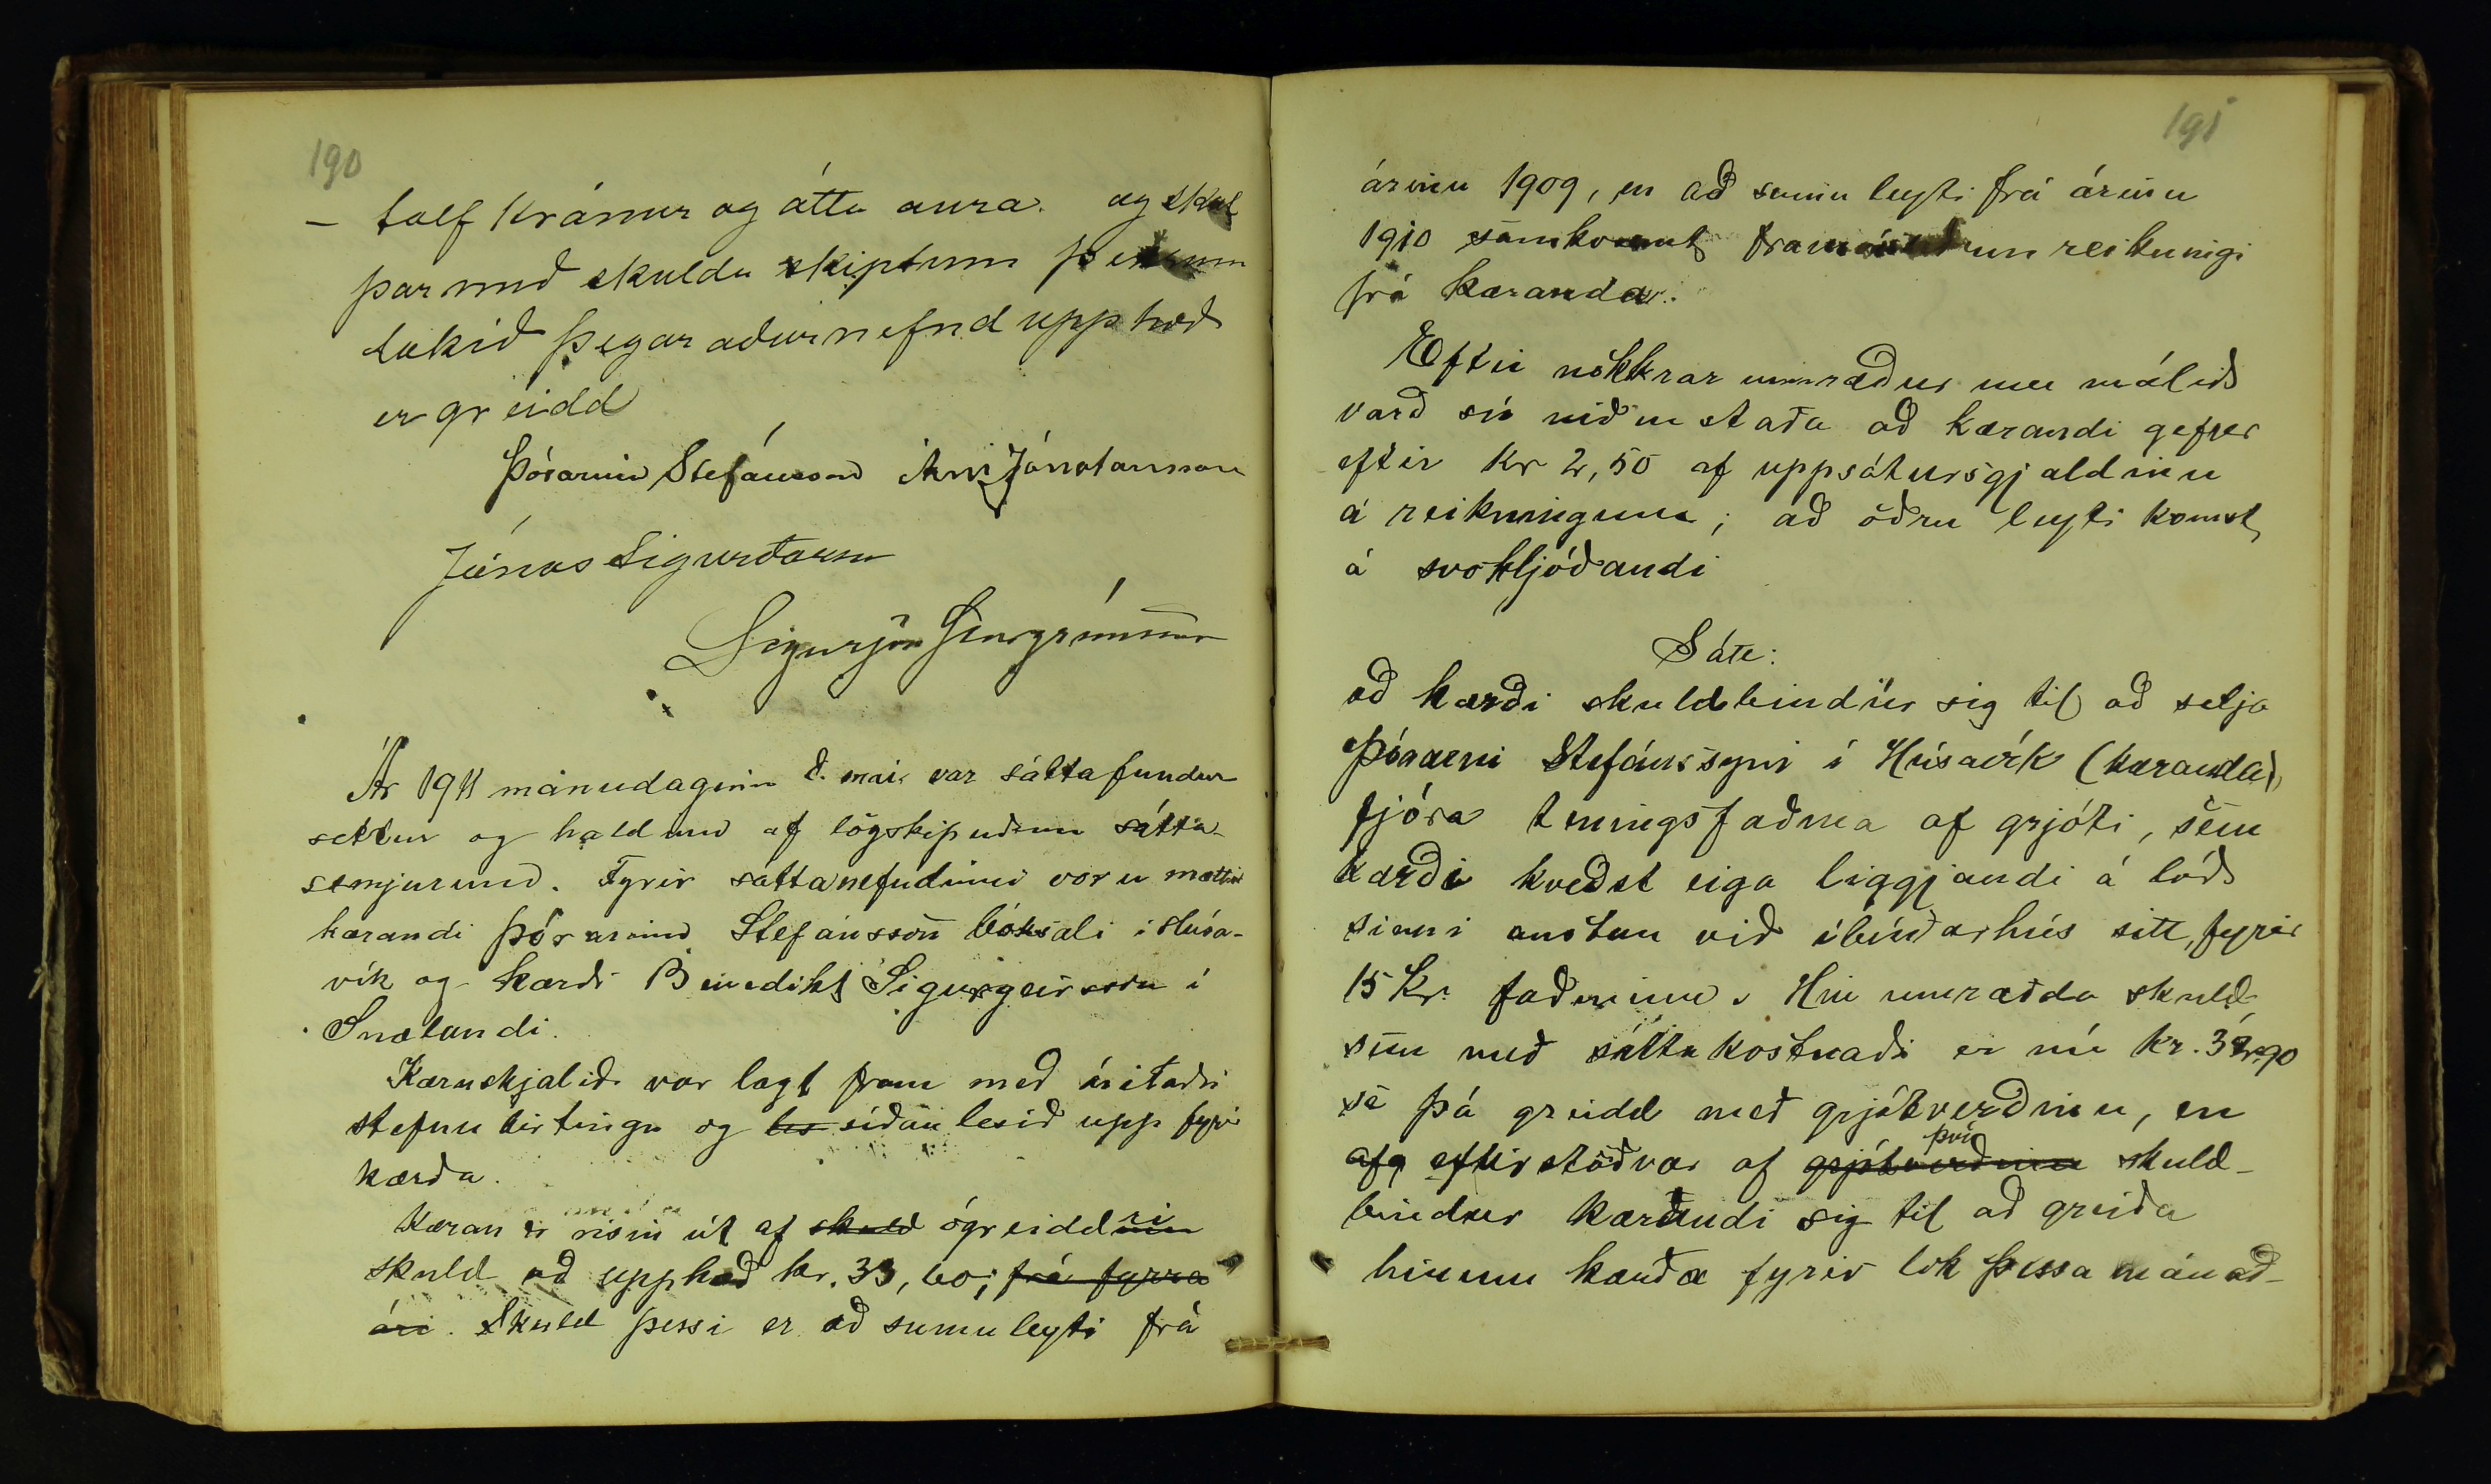 190
– tolf krónur og átta aura. og skal
þar með skulda skiptum þessum
lokið þegar aðurnefnd upphæð
er greidd
Þórarinn Stefánsson Árni Jónatansson
Jónas Sigurðsson
Sigurjón
Ár 1911 mánudaginn 8. maí var sáttafundur
settur og haldinn af lögskipuðum sátta-
semjurum. Fyrir sáttanefndinni voru mættir
kærandi Þórarinn Stefánsson bóksali í Húsa-
vík og kærði Benedikt Sigurgeirsson í
Snælandi.
Kæruskjalið var lagt fram með áritaðri
stefnu birtingu og les síðan lesið upp fyrir
kærða.
Kæran er risin út af skuld ógreiddri
skuld að upphæð kr. 33,60; frá fyrra
ári. Skuld þessi er að sumu leyti frá
191
árinu 1909, en að sumu leyti frá árinu
1910 samkvæmt reikningi
frá kæranda.
Eftir nokkrar umræður um málið
varð sú niðurstaða að kærandi gefur
eftir kr 2,50 af uppsátursgjaldinu
á reikningnum; að öðru leyti komst
á svohljóðandi
Sátt:
að kærði skuldbindur sig til að selja
Þórarni Stefánssyni í Húsavík (kæranda)
fjóra teningsfaðma af grjóti, sem
kærði kveðst eiga liggjandi á lóð
sinni austan við íbúðarhús sitt, fyrir
15 kr. faðminn. Hin umrædda skuld
sem með sáttakostnaði er nú kr. 90
sé þá greidd með grjótverðinu, en
afg eftirstöðvar af grjótverðinu því skuld-
bindur kærandi sig til að greiða
hinum kærða fyrir lok þessa mánað-